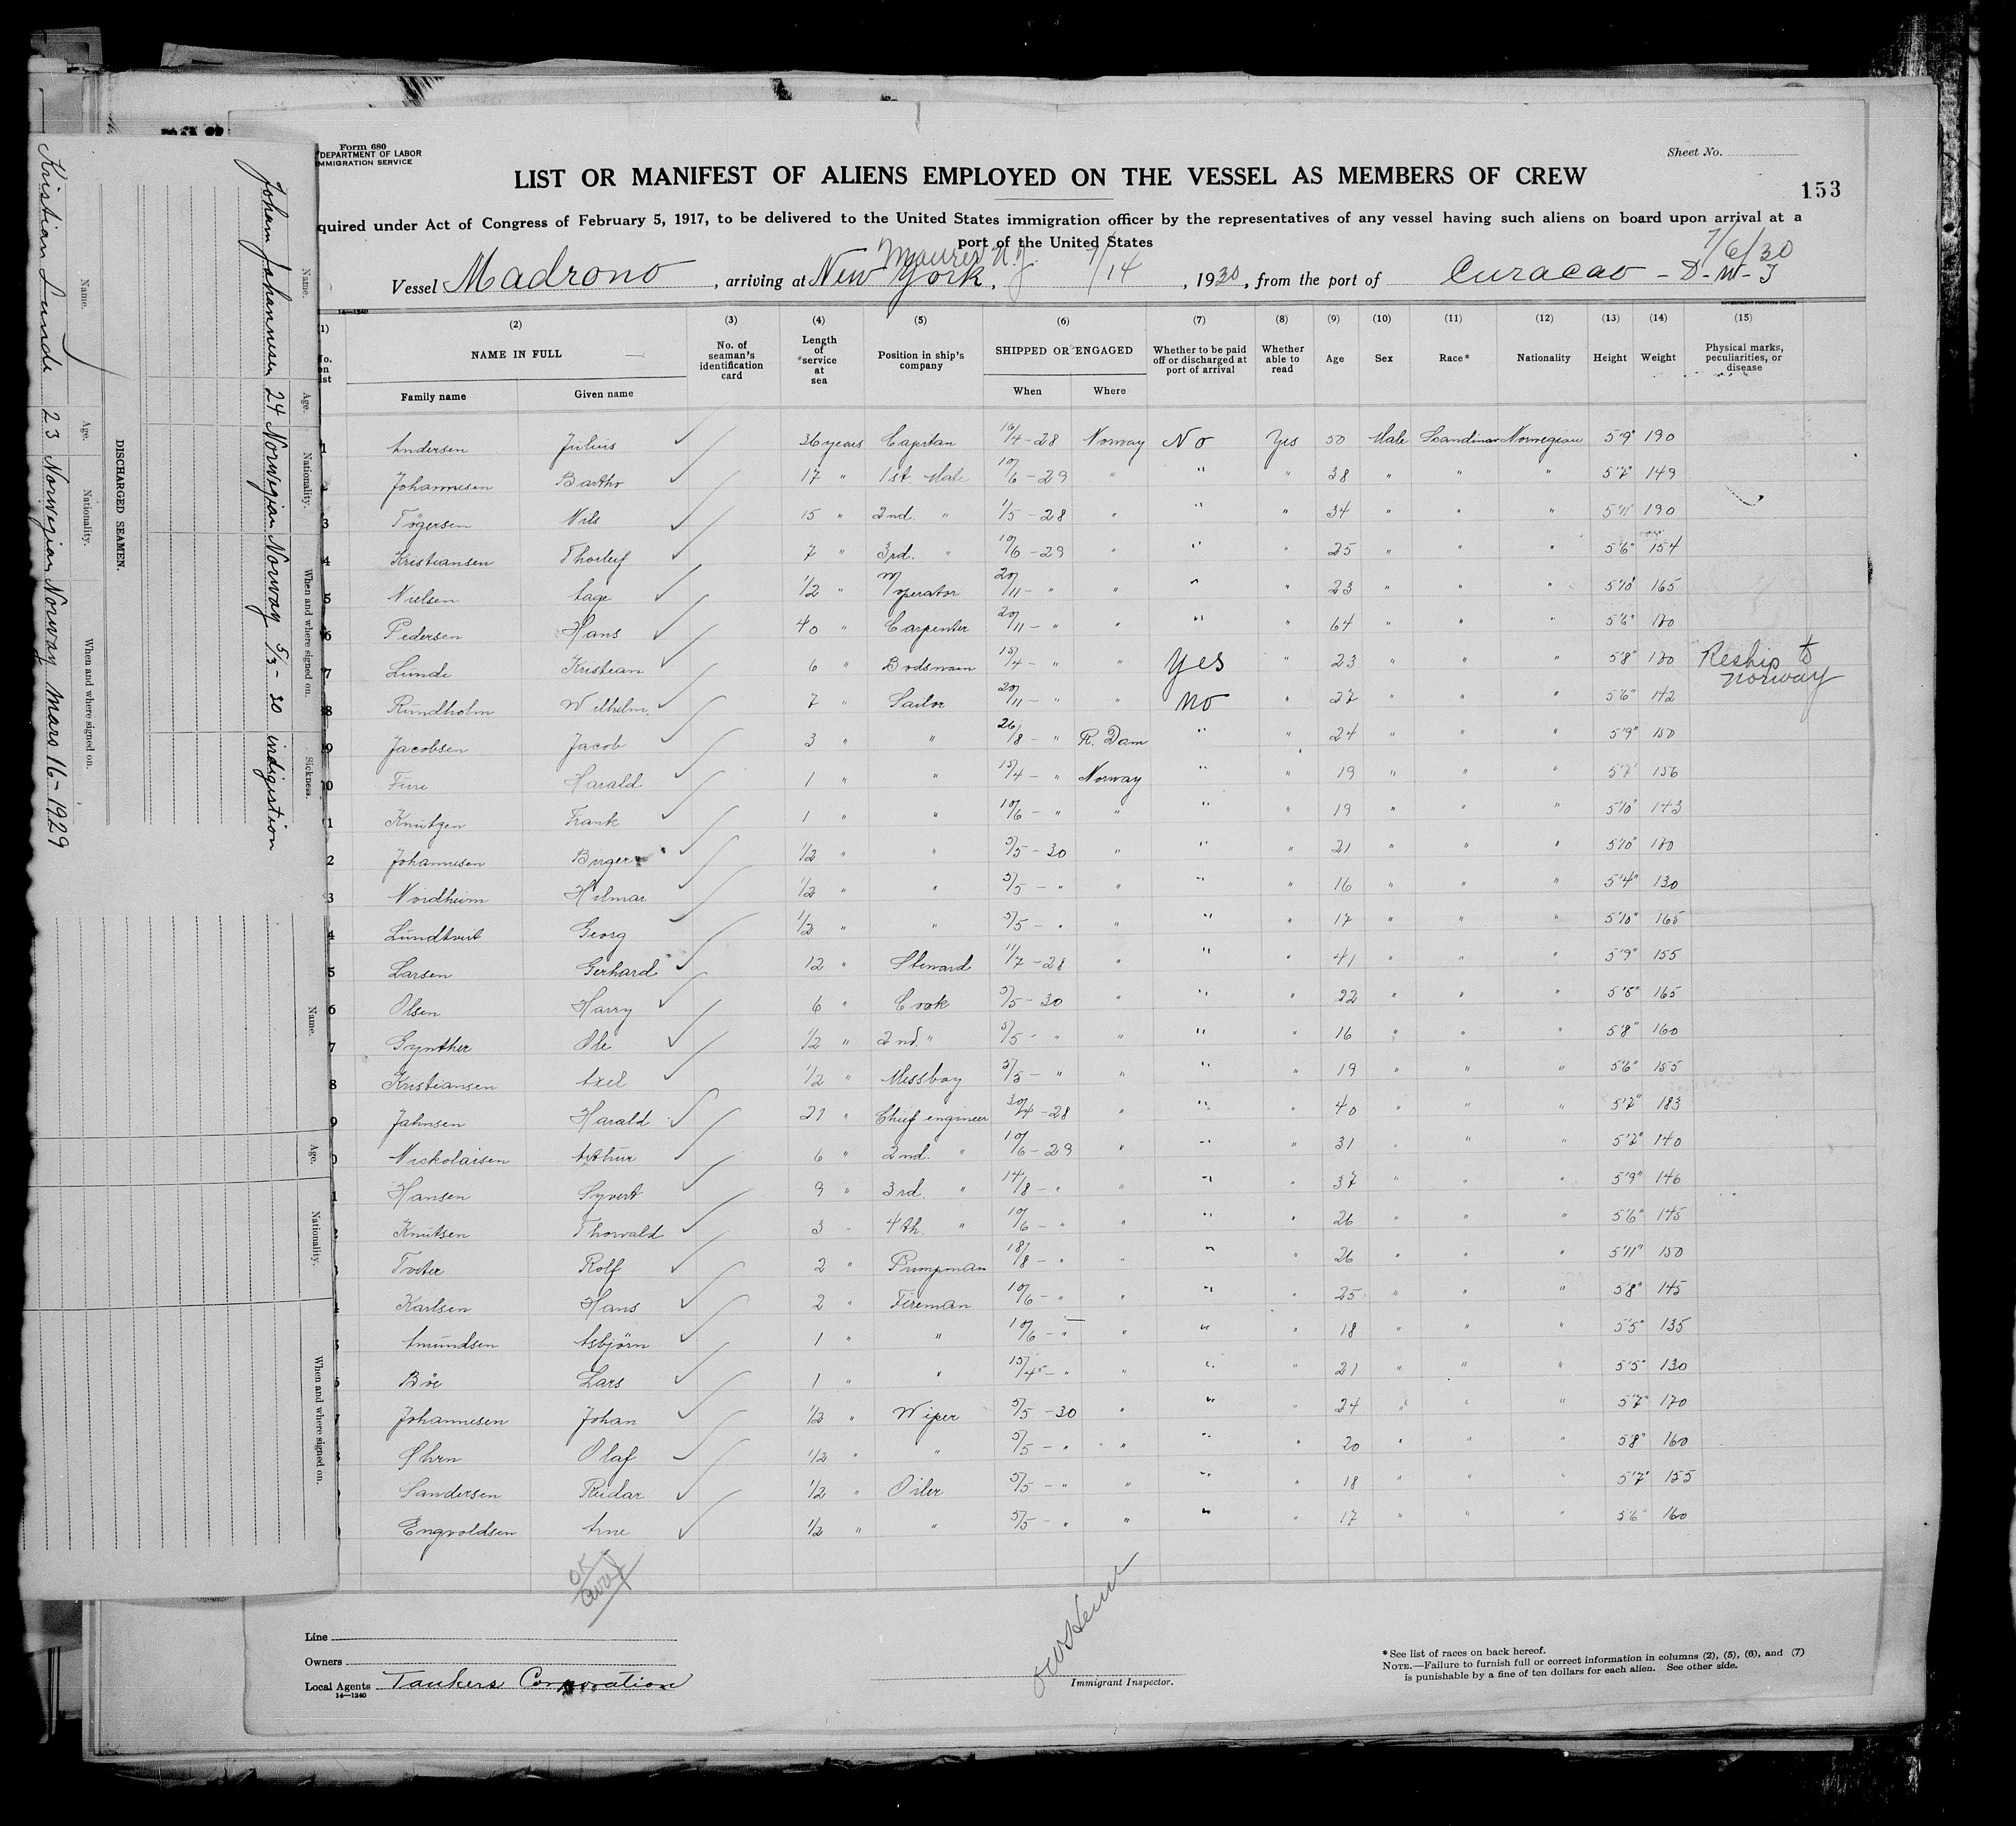 Form 680
DEPARTMENT OF LABOR
IMMIGRATION SERVICE
Sheet No.
LIST OR MANIFEST OF ALIENS EMPLOYED ON THE VESSEL AS MEMBERS OF CREW
153
quired under Act of Congress of February 5, 1917, to be delivered to the United States immigration officer by the representatives of any vessel having such aliens on board upon arrival at a
port of the United States
Maurer N.J. 7/6/30
Vessel Madrono, arriving at New York, 7/14, 1930, from the port of Curacao - D-W-I
14—1240
(1) (2) (3) (4) (5) (6) (7) (8) (9) (10) (11) (12) (13) (14) (15)
NAME IN FULL No. of seaman's identification card Length of service at sea Position in ship's company SHIPPED OR ENGAGED Whether to be paid off or discharged at port of arrival Whether able to read Age Sex Race* Nationality Height Weight Physical marks, peculiarities, or disease
Family name Given name When Where
1 Andersen Julius 36 years Capstan 16/4-28 Norway No Yes 50 Male Scandinav Norwegian 5'9" 190
Johannesen Barthr 17 " 1st. Mate 10/6-29 " " " 38 " " " 5'7" 149
3 Tögersen Nils 15 " 2nd. " 1/5-28 " " " 34 " " " 5'11" 190
4 Kristiansen Thorleif 7 " 3rd. " 10/6-29 " " " 25 " " " 5'6" 154
5 Nielsen Aage 1/2 " operator 20/11- " " " " 23 " " " 5'10" 165
6 Pedersen Hans 40 " Carpenter 20/11- " " " " 64 " " " 5'6"
7 Lunde Kristian 6 " Bodsmain 15/4- " " Yes " 23 " " " 5'8" Reship to Norway
8 Rundholm Wilhelm 7 " Sailor 20/11- " " No " 27 " " " 5'6" 142
9 Jacobsen Jacob 3 " " 26/8- " R. Dam " " 24 " " " 5'9" 150
0 Harald 1 " " 15/4- " Norway " " 19 " " " 5'7" 156
1 Knutzen Frank 1 " " 10/6- " " " " 19 " " " 5'10" 143
2 Johannesen Birger 1/2 " " 5/5-30 " " " 21 " " " 5'10"
3 Nordheim Hilmar 1/2 " " 5/5- " " " " 16 " " " 5'4" 130
4 Georg 1/2 " " 5/5- " " " " 17 " " " 5'10" 165
5 Larsen Gerhard 12 " Steward 11/7-28 " " " 41 " " " 5'9" 155
6 Olsen Harry 6 " Cook 5/5-30 " " " 22 " " " 5'5" 165
7 Gynther Ole 1/2 " 2nd. " 5/5- " " " " 16 " " " 5'8" 160
8 Kristiansen Axel 1/2 " Messboy 5/5- " " " " 19 " " " 5'6" 155
9 Jahnsen Harald 21 " Chief engineer 30/4-28 " " " 40 " " " 5'7" 183
0 Nickolaisen Arthur 6 " 2nd. " 10/6-29 " " " 31 " " " 5'7" 140
1 Hansen Syvert 9 " 3rd. " 14/8- " " " " 37 " " " 5'9" 146
Knutsen Thorvald 3 " 4th. " 10/6- " " " " 26 " " " 5'6" 145
Tveter Rolf 2 " Pumpman 18/8- " " " " 26 " " " 5'11" 150
Karlsen Hans 2 " Fireman 10/6- " " " " 25 " " " 5'8" 145
Amundsen Asbjörn 1 " " 10/6- " " " " 18 " " " 5'5" 135
Böe Lars 1 " " 15/4- " " " " 21 " " " 5'5" 130
Johannesen Johan 1/2 " Wiper 5/5-30 " " " 24 " " " 5'7" 170
Olaf 1/2 " " 5/5- " " " " 20 " " " 5'8" 160
Sandersen Reidar 1/2 " Oiler 5/5- " " " " 18 " " " 5'7" 155
Engvoldsen Arne 1/2 " " 5/5- " " " " 17 " " " 5'6" 160
OK
Line
Owners
Local Agents Tankers Corporation
14—1240
Immigrant Inspector.
*See list of races on back hereof.
NOTE.—Failure to furnish full or correct information in columns (2), (5), (6), and (7)
is punishable by a fine of ten dollars for each alien. See other side.
DISCHARGED SEAMEN.
Name. Age. Nationality. When and where signed on.
Kristian Lunde 23 Norwegian Norway Mars 16-1929
Name. Age. Nationality. When and where signed on. Sickness.
Joham Johannesen 24 Norwegian Norway 5/5-30 indigestion
Name. Age. Nationality. When and where signed on.